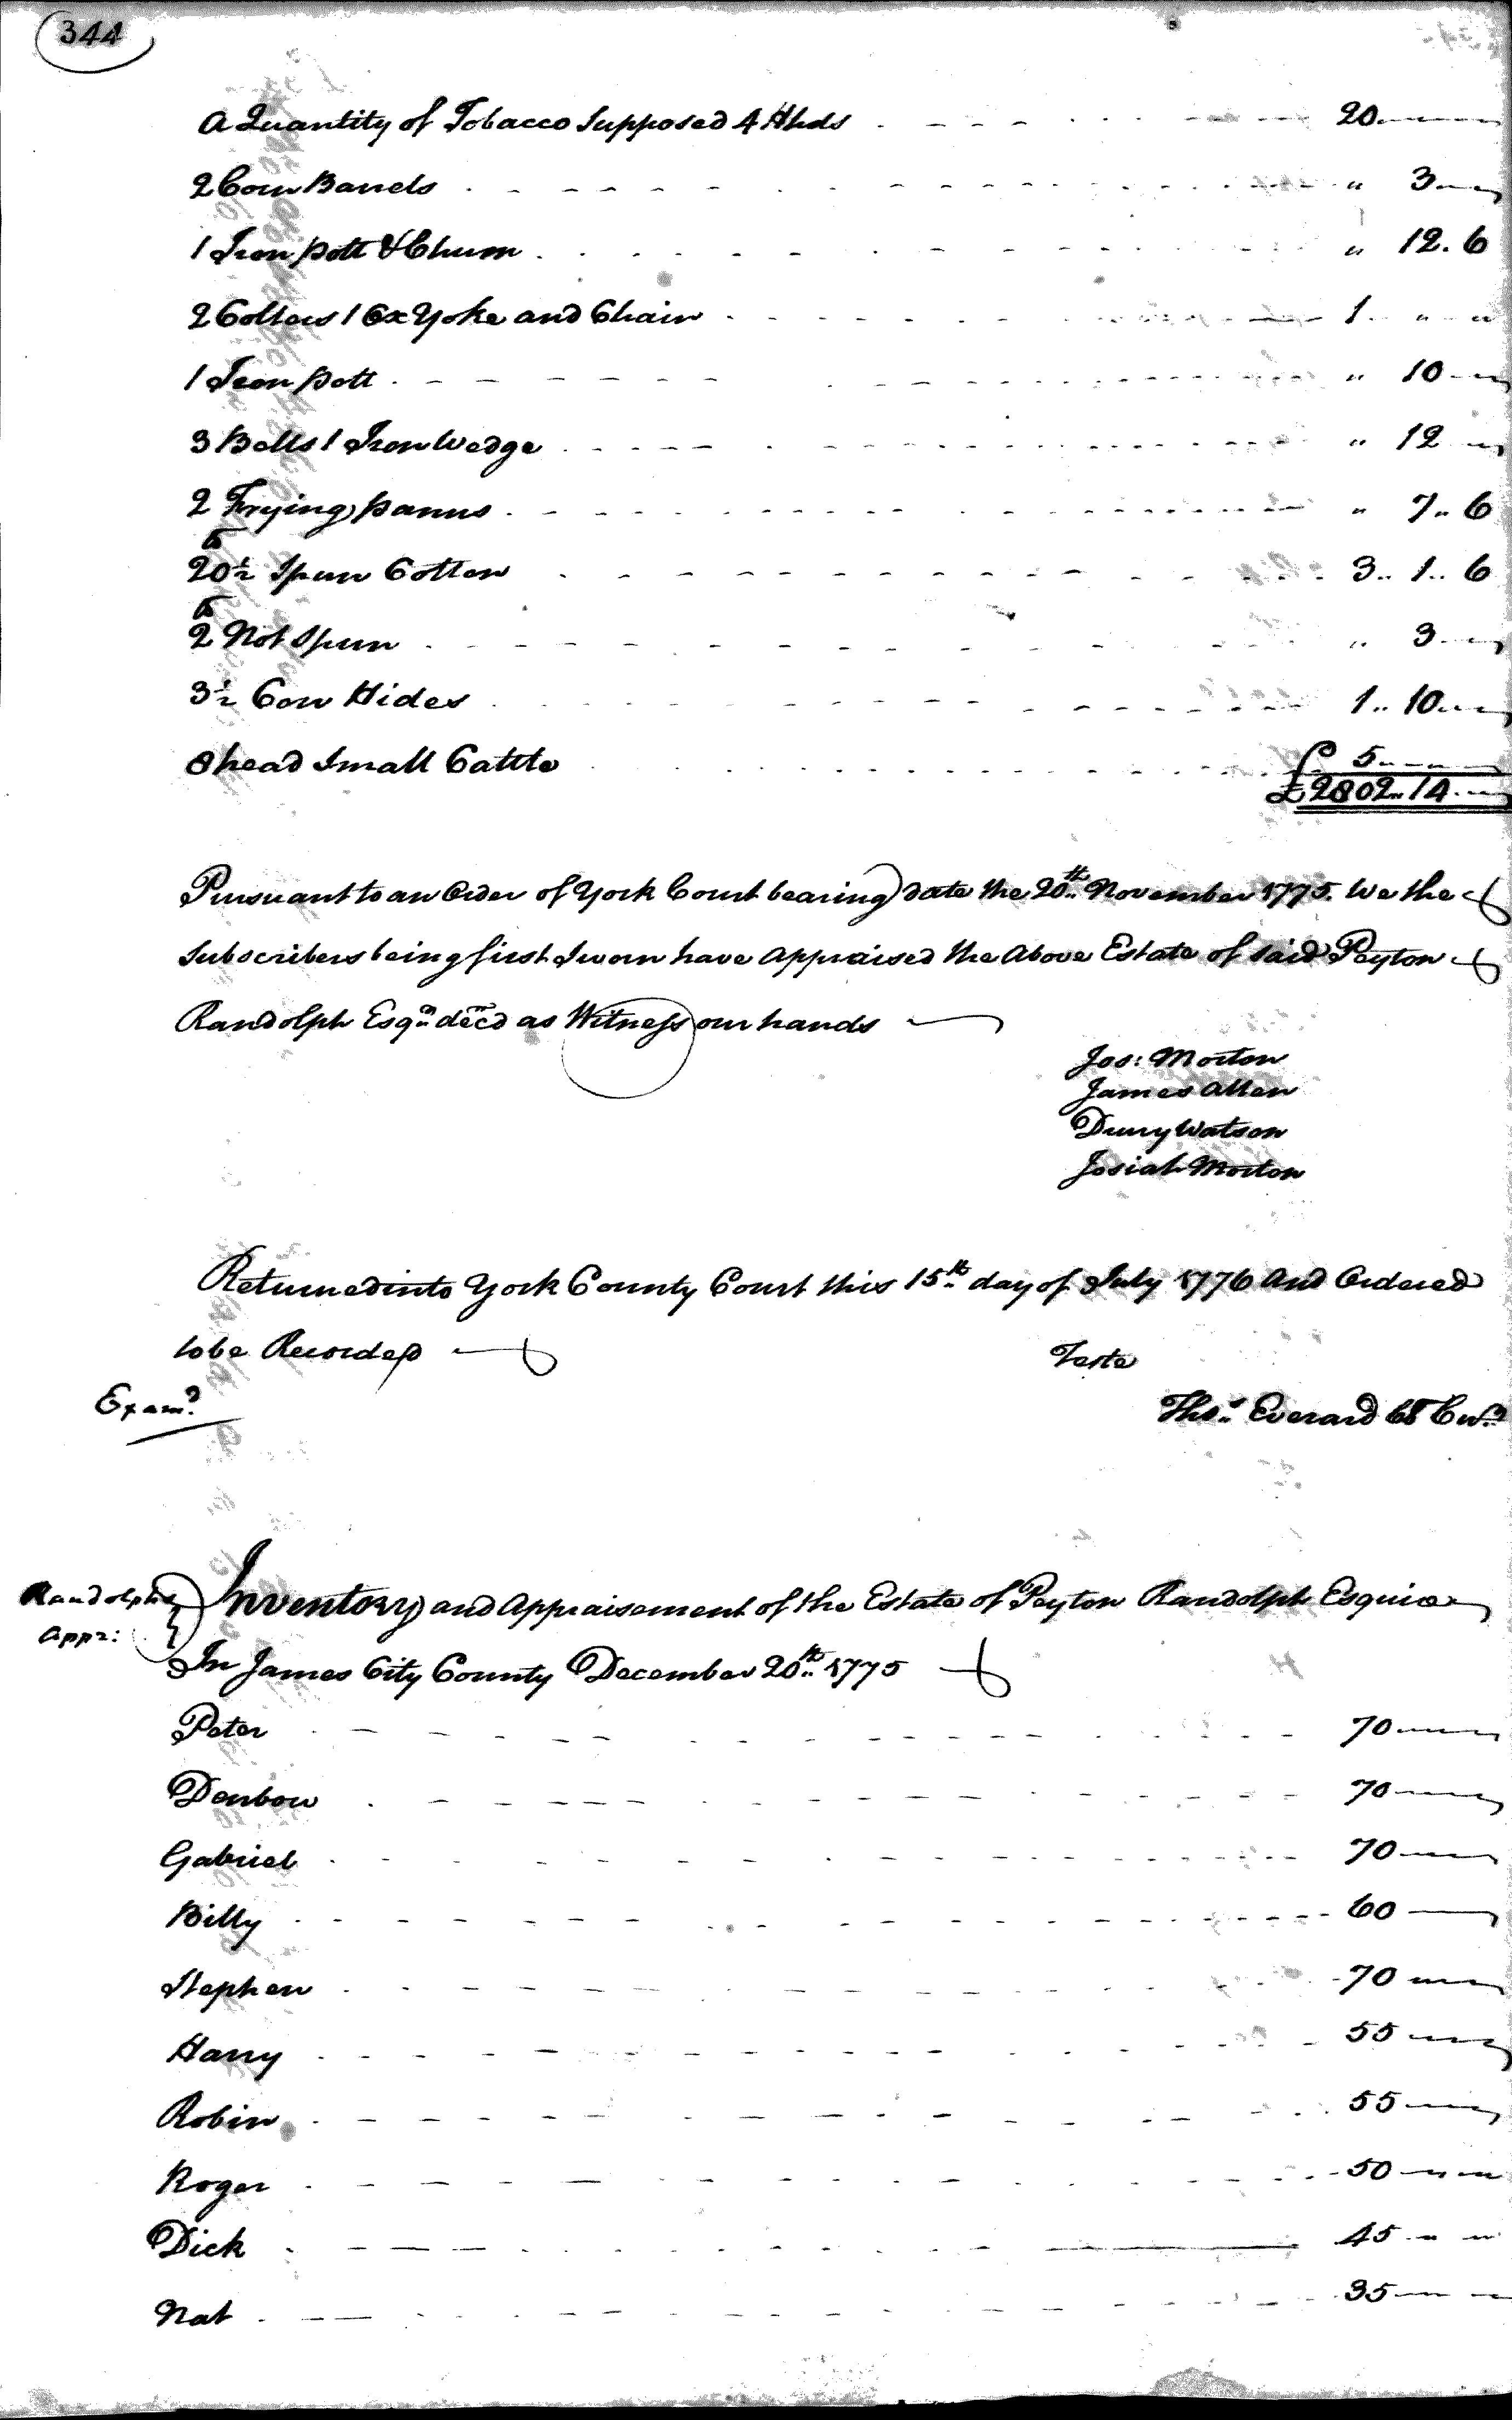 344
A Quantity of Tobacco Supposed 4 Hhds 20
2 Corn Barrels " 3
1 Iron pott & Churn " 12. 6
2 Colters 1 Ox Yoke and Chain 1. " "
1 Iron pott " 10
3 Bells 1 Iron Wedge " 12
2 Frying panns " 7.. 6
20½ lb Spun Cotton 3.. 1.. 6
2 lb Not Spun " 3
3½ Cow Hides 1.. 10
8 head Small Cattle 5
£2802.. 14
Pursuant to an Order of York Court bearing date the 20th November 1775. We the
Subscribers being first Sworn have Appraised the Above Estate of said Peyton
Randolph Esqr. decd as Witness our hands
Jos: Morton
James Allen
Drury Watson
Josiah Morton
Returned into York County Court this 15th day of July 1776 And Ordered
to be Recorded
Teste
Examd.
Thos. Everard Cl Cur.
Randolphs
Appr:
Inventory and Appraisement of the Estate of Peyton Randolph Esquire
In James City County December 20th 1775
Peter 70
Denbow 70
Gabriel 70
Billy 60
Stephen 70
Harry 55
Robin 55
Roger 50
Dick 45
Nat 35